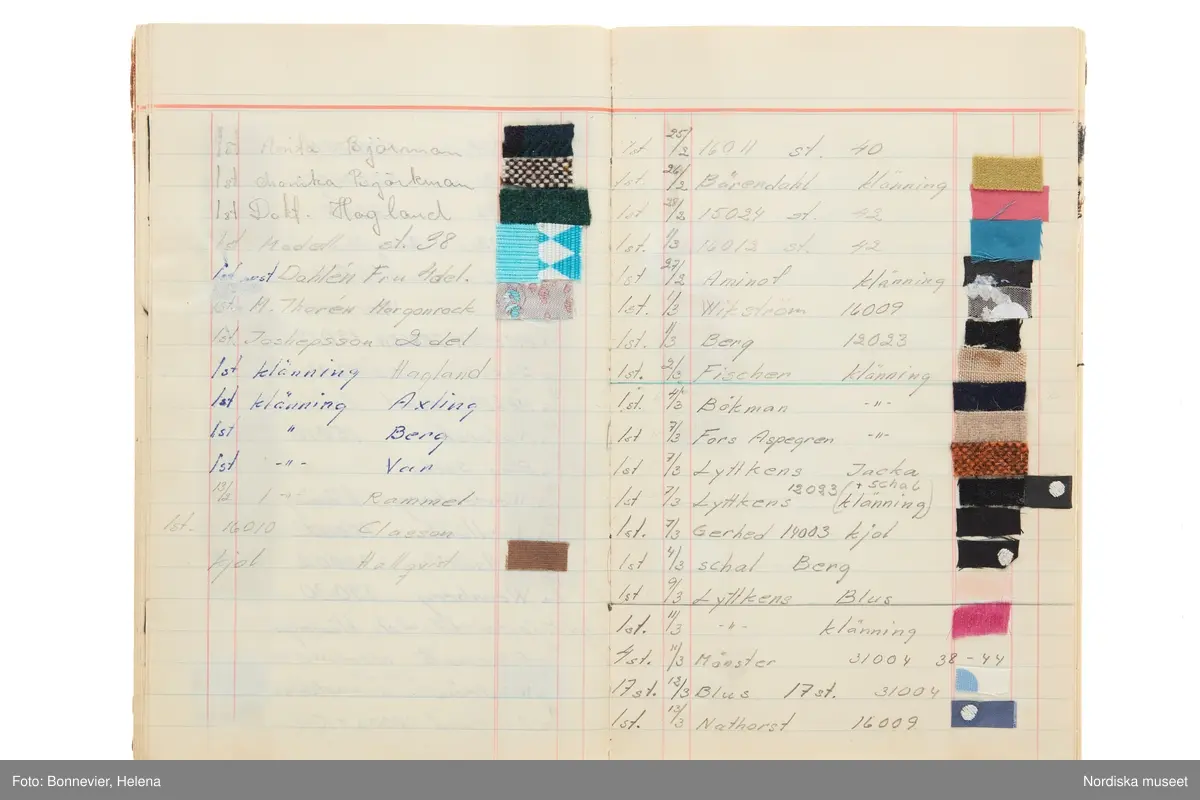 1st Monika Björkman
1st Monika Björkman
1st Dokt. Hagland
1st Modell st. 38
1st Dahlén Fru 4del.
1st. M. Thorén Morgonrock
1st. Joshepsson 2 del
1st klänning Hagland
1st klänning Axling
1st " Berg
1st -"- Van
13/2 1 -"- Rammel
1st. 16010 Classon
kjol Hallqvist
1st 25/2 16011 st. 40
1st. 26/2 Bärendahl klänning
1st 28/2 15024 st. 42
1st. 1/3 16012 st. 42
1st 27/2 Aminof klänning
1st. 1/3 Wikström 16009
1st. 1/3 Berg 12023
1st. 2/3 Fischer klänning
1st. 4/3 Bökman -"-
1st 7/3 Fors Aspegren -"-
1st 7/3 Lyttkens Jacka
1st 7/3 Lyttkens 12023 (+ schal klänning)
1st. 7/3 Gerhed 14003 kjol
1st 4/3 schal Berg
1st 9/3 Lyttkens Blus
1st. 11/3 -"- klänning
4st. 11/3 Mönster 31004 38-44
17st. 12/3 Blus 17st. 31004
1st. 13/3 Nathorst 16009
Foto: Bonnevier, Helena
Nordiska museet